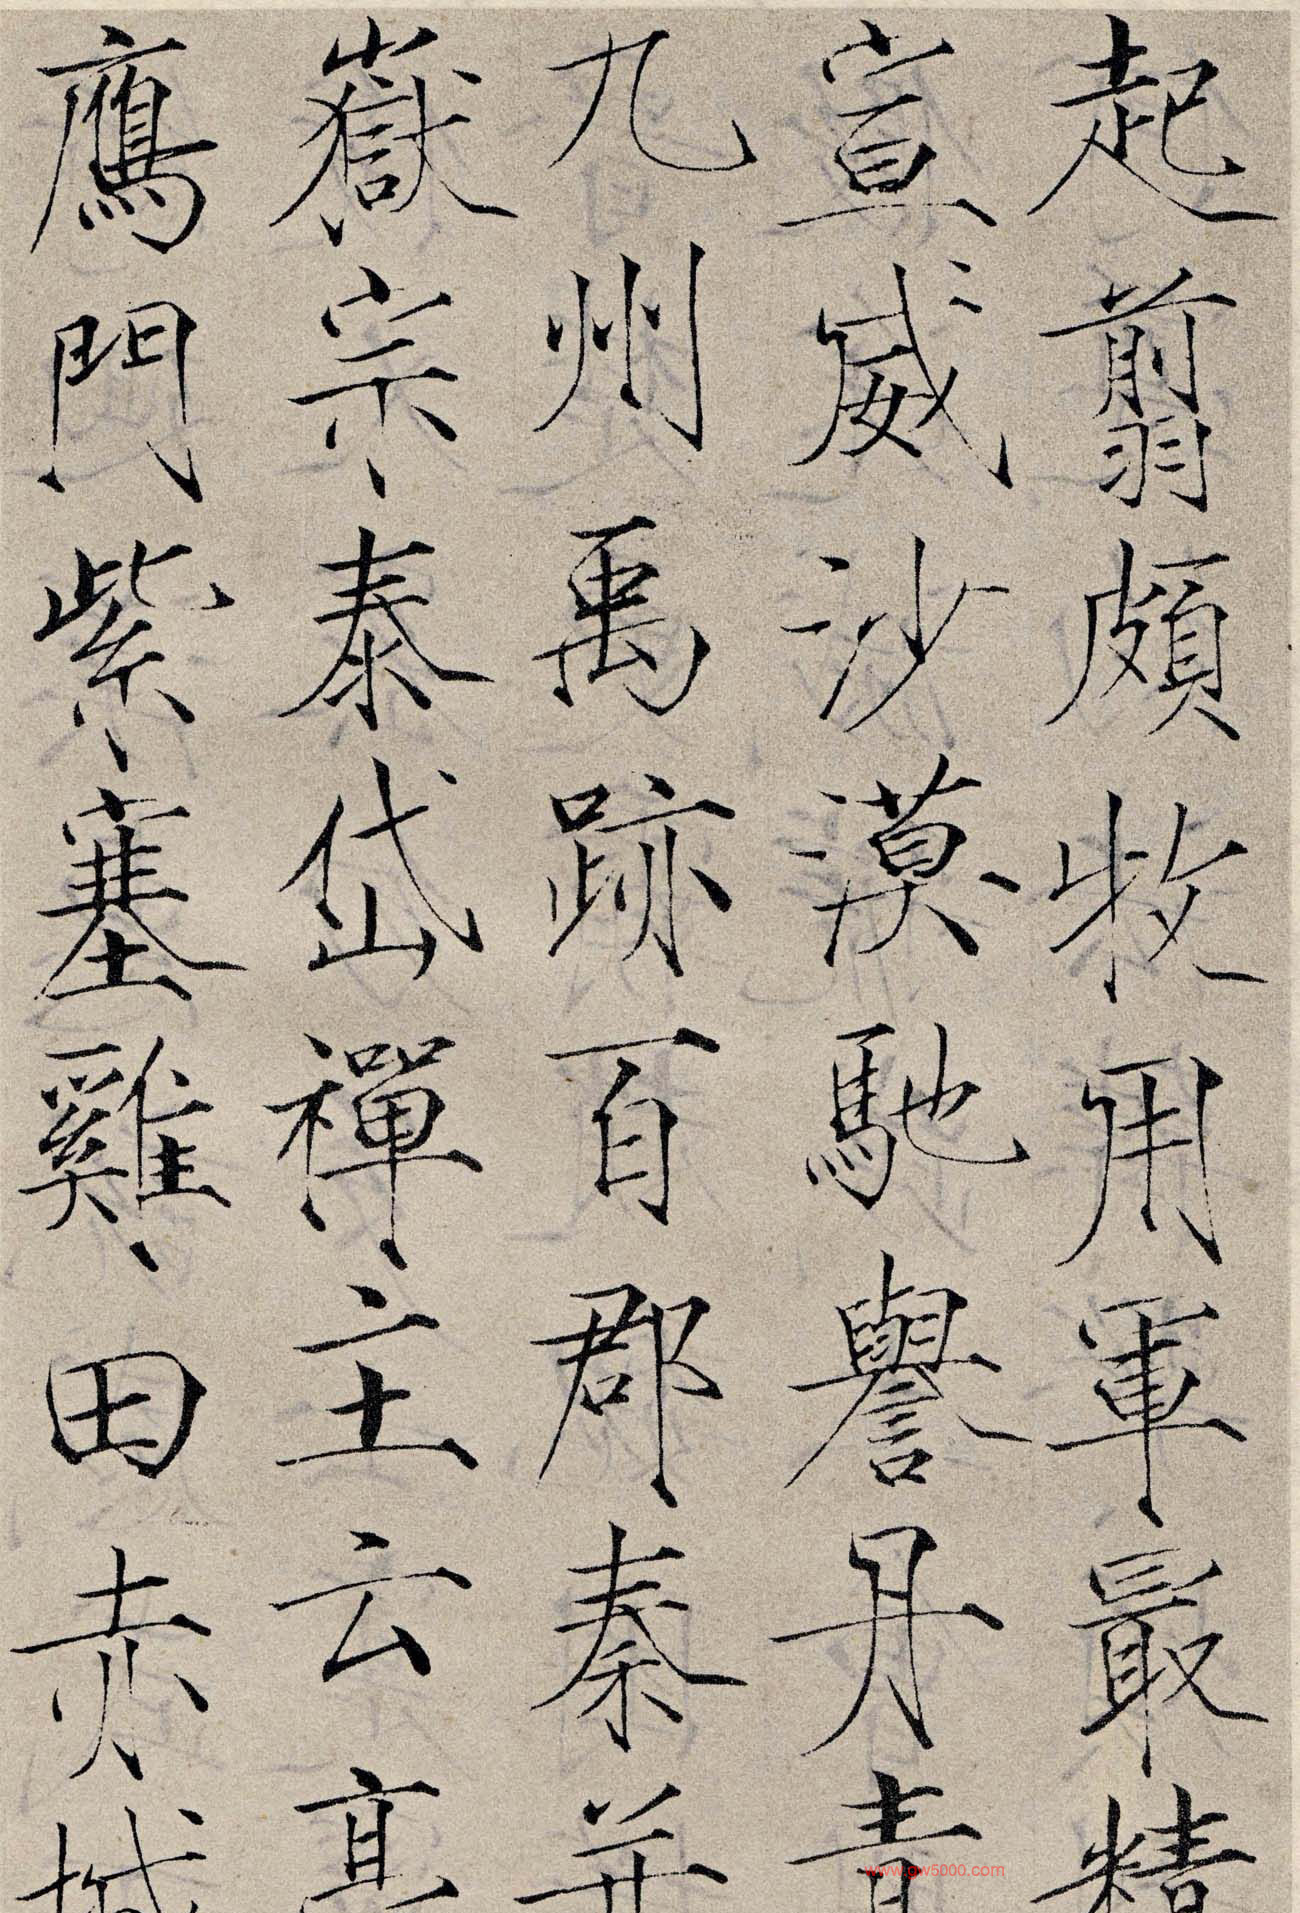 起翦頗牧用軍最精
宣威沙漠馳譽丹青
九州禹跡百郡秦并
嶽宗泰岱禪主云亭
鴈門紫塞雞田赤城
www.gw5000.com